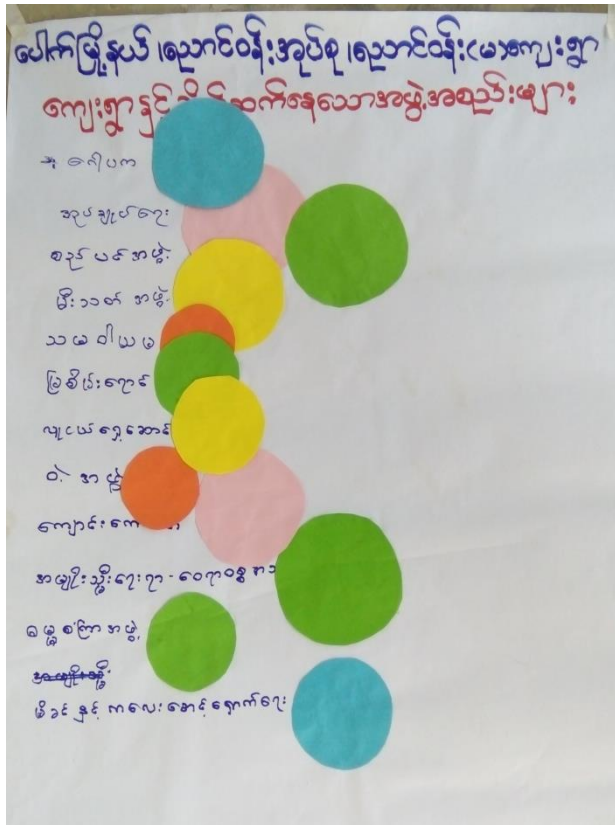 ပေါက်မြို့နယ်၊ညောင်ဝန်းအုပ်စု၊ညောင်ဝန်း(မ)ကျေးရွာ
ကျေးရွာနှင့် ဆက်နေသောအဖွဲ့အစည်းများ
ဂေါပက
အုပ်ချုပ်ရေး
စည်ပင်အဖွဲ့
မီးသတ်အဖွဲ့
သမဝါယမ
မြစိမ်းရောင်
လူငယ်ရှေ့ဆောင်
အဖွဲ့
ကျောင်း
အမျိုးသ္မီးရေးရာ-ဝေယာဝစ္စ
ဓမ္မစကြာအဖွဲ့
မိခင်နှင့်ကလေးစောင့်ရှောက်ရေး